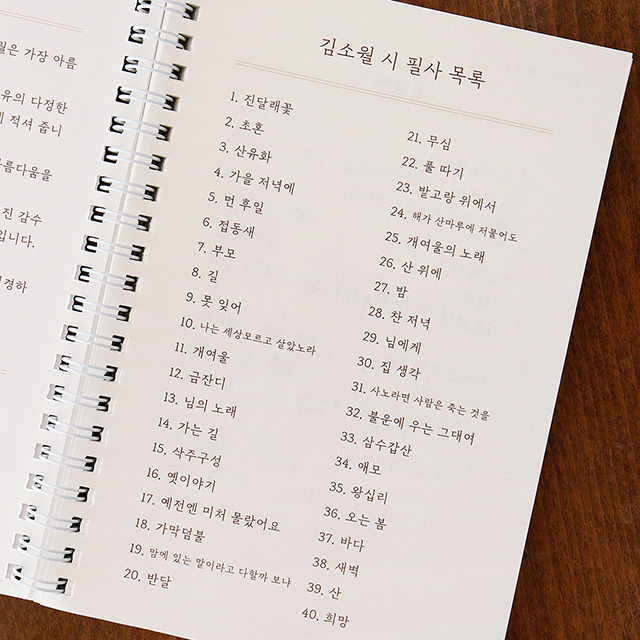 월은 가장 아름
유의 다정한
적셔 줍니
름다움을
진 감수
입니다.
경하
김소월 시 필사 목록
1. 진달래꽃
2. 초혼
3. 산유화
4. 가을 저녁에
5. 먼 후일
6. 접동새
7. 부모
8. 길
9. 못 잊어
10. 나는 세상모르고 살았노라
11. 개여울
12. 금잔디
13. 님의 노래
14. 가는 길
15. 삭주구성
16. 옛이야기
17. 예전엔 미처 몰랐어요
18. 가막덤불
19. 맘에 있는 말이라고 다할까 보냐
20. 반달
21. 무심
22. 풀 따기
23. 밭고랑 위에서
24. 해가 산마루에 저물어도
25. 개여울의 노래
26. 산 위에
27. 밤
28. 찬 저녁
29. 님에게
30. 집 생각
31. 사노라면 사람은 죽는 것을
32. 불운에 우는 그대여
33. 삼수갑산
34. 애모
35. 왕십리
36. 오는 봄
37. 바다
38. 새벽
39. 산
40. 희망